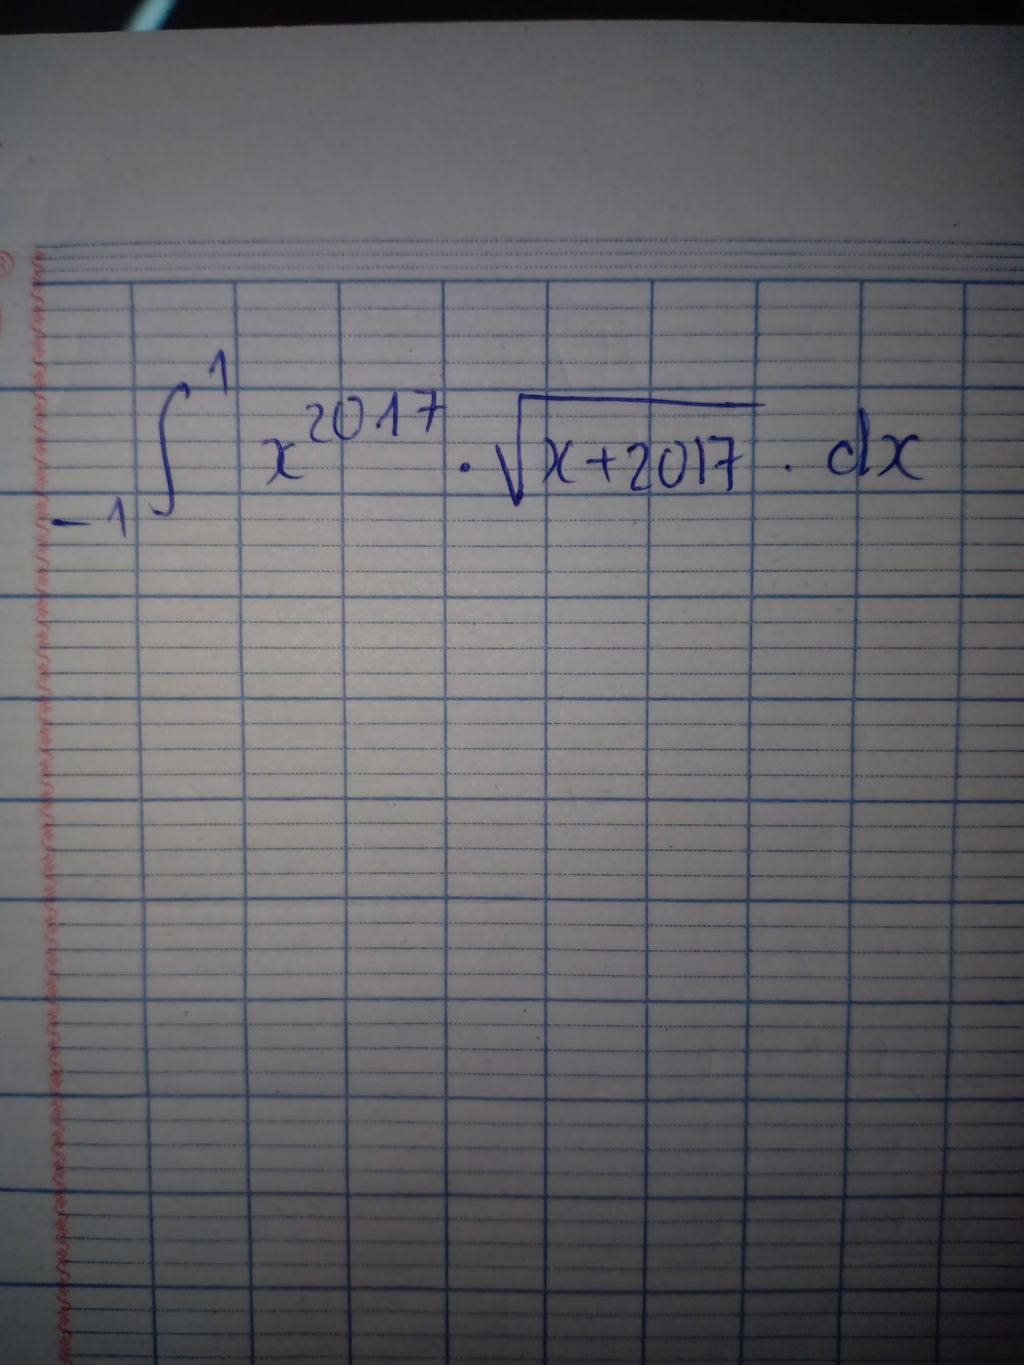 ∫₋₁¹ x²⁰¹⁷ · √(x+2017) · dx